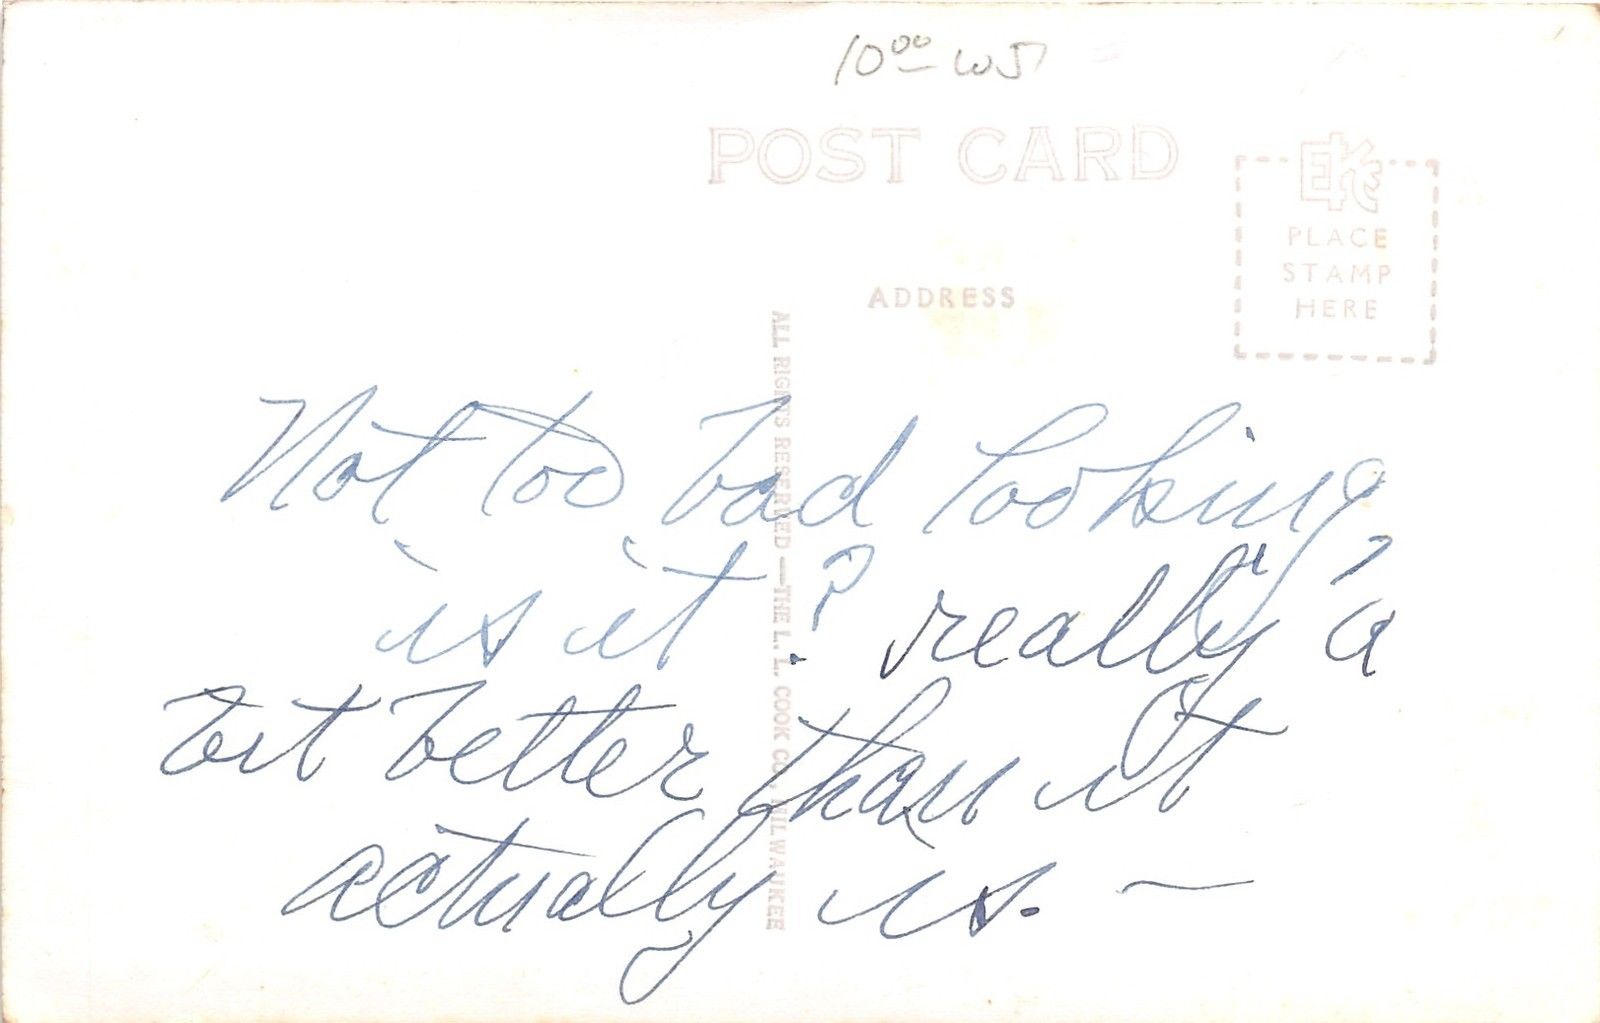 10⁰⁰ WI
POST CARD
EKC
PLACE
STAMP
HERE
ADDRESS
ALL RIGHTS RESERVED — THE L. L. COOK CO., MILWAUKEE
Not too bad looking,
is it? really a
bit better than it
actually is. —